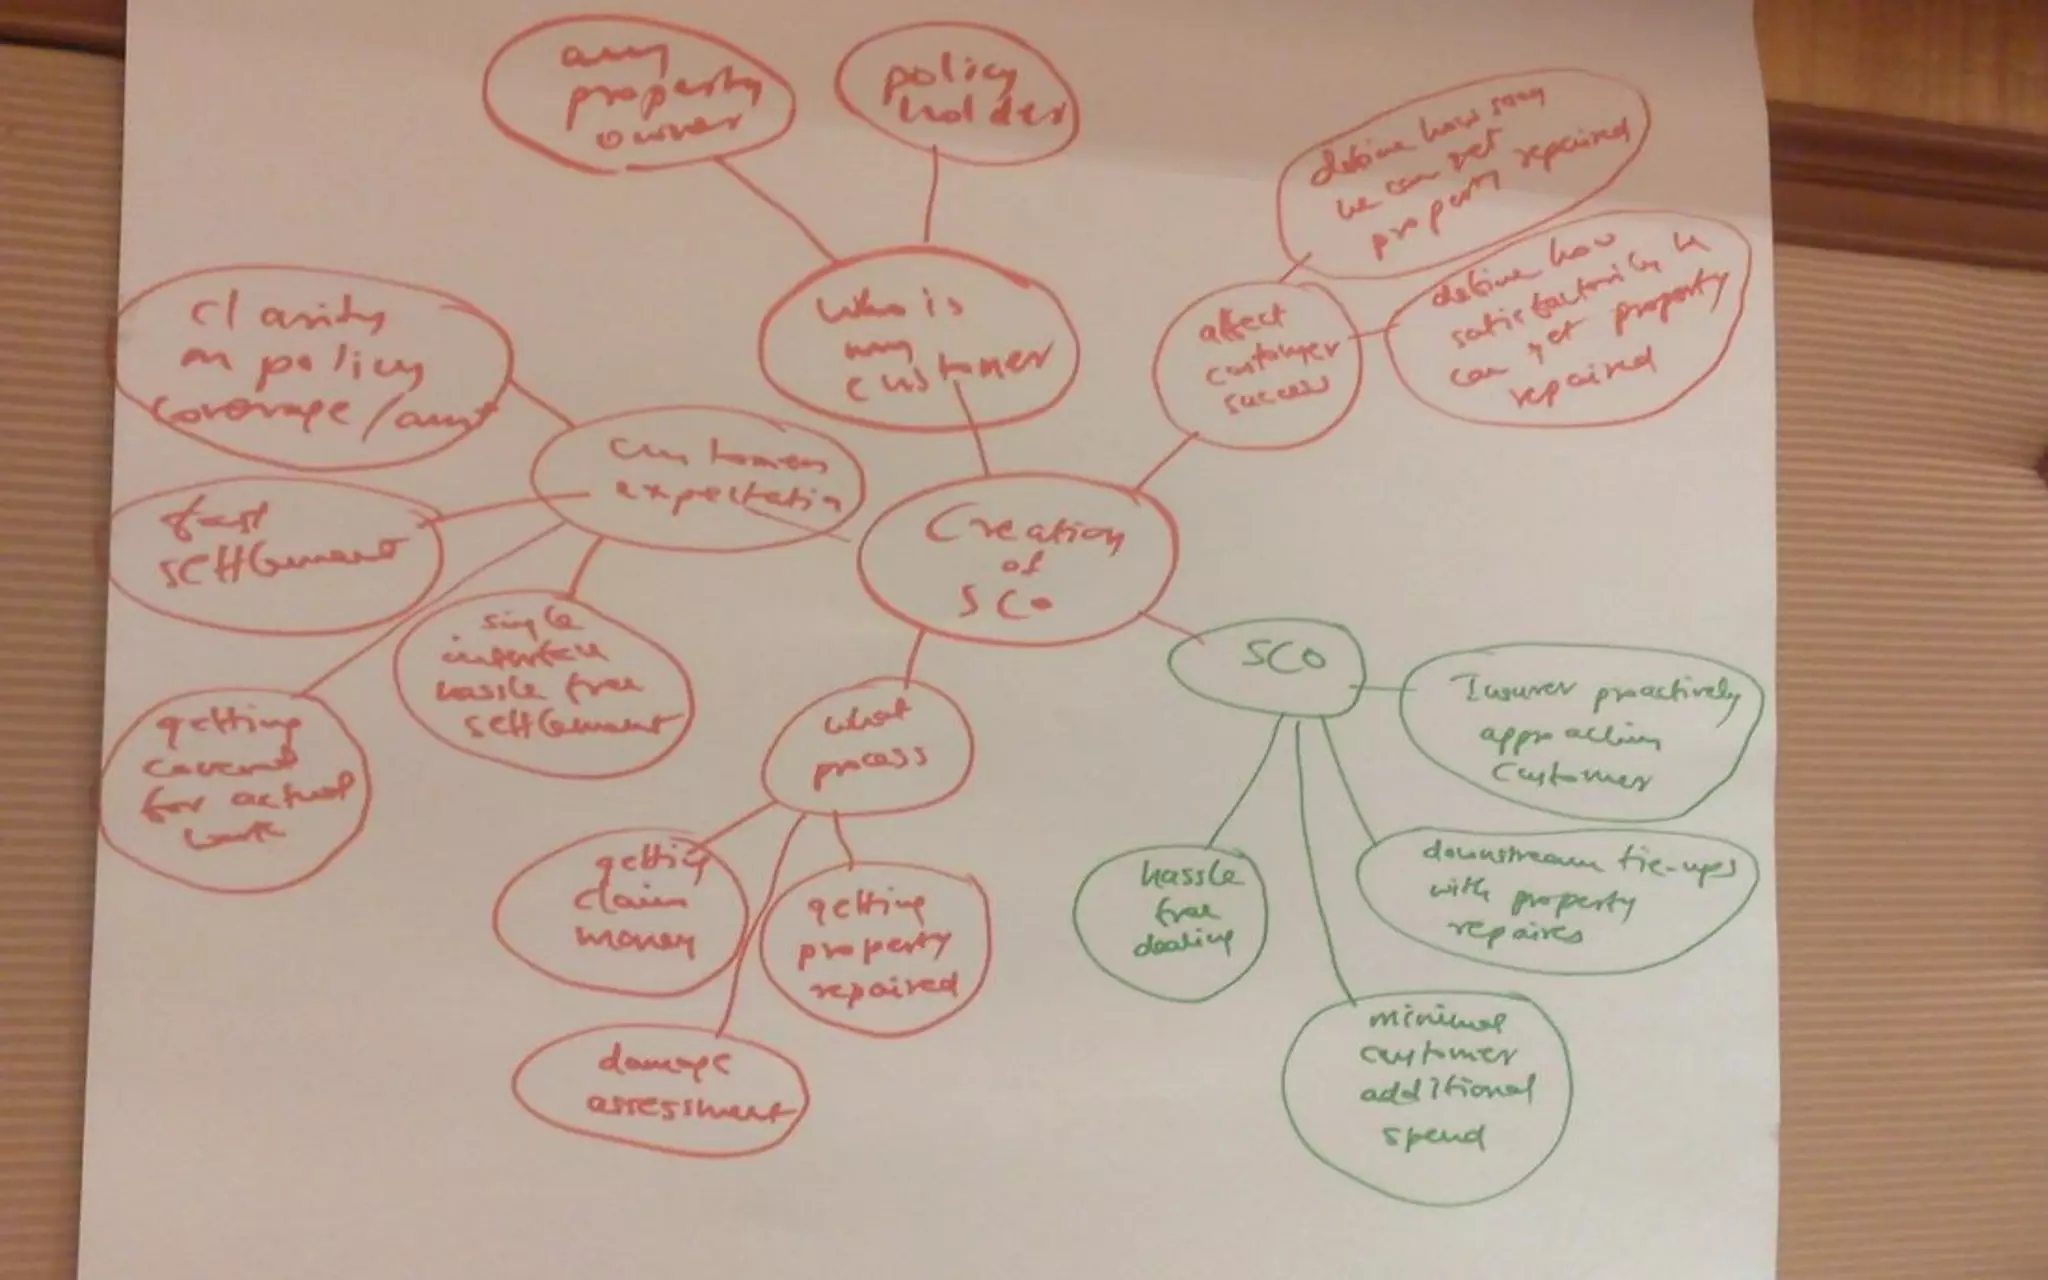 any
property
owner
policy
holder
define how
we can get
property repaired
define how
satisfactorily
can get property
repaired
Who is
my
customer
affect
customer
success
clarity
on policy
coverage/amt
customer
expectation
Creation
of
SCO
fast
settlement
single
interface
hassle free
settlement
getting
covered
for actual
work
what
process
getting
claim
money
getting
property
repaired
damage
assessment
SCO
Insurer proactively
approaching
customer
downstream tie-ups
with property
repaires
hassle
free
dealing
minimal
customer
additional
spend